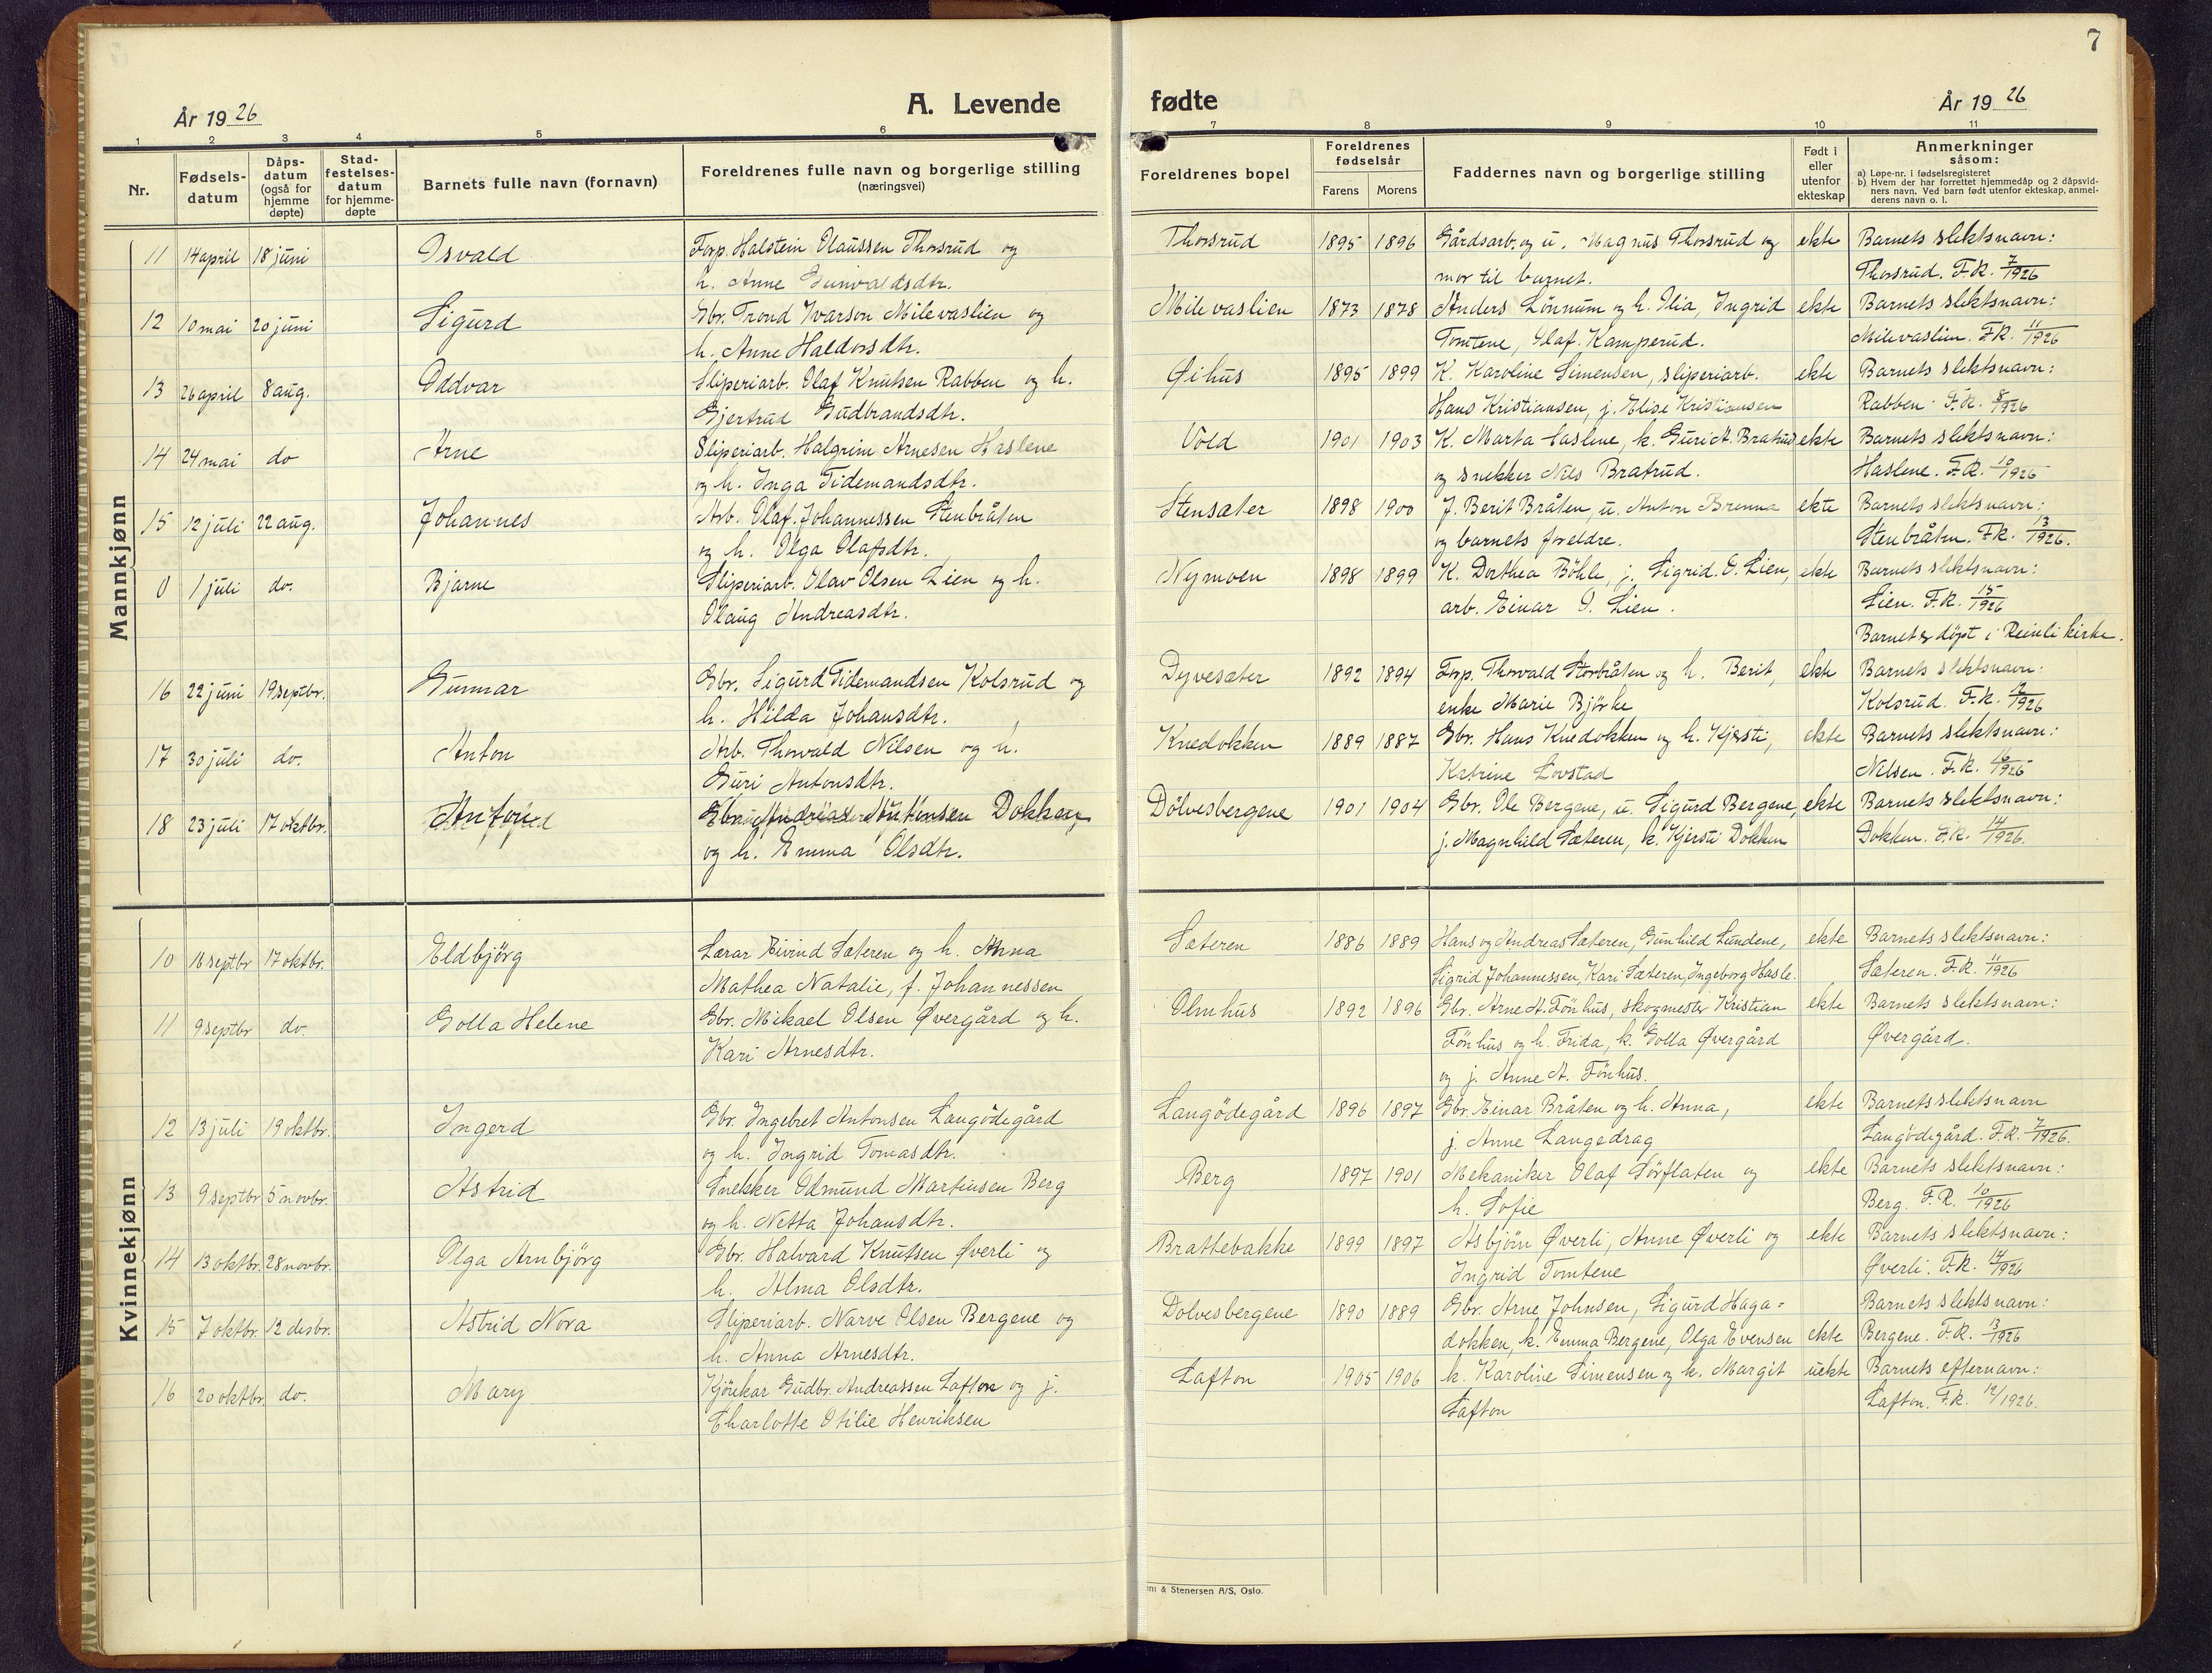 7
År 1926
A. Levende
fødte
År 1926
1 2 3 4 5 6 7 8 9 10 11
Nr.
Fødsels-
datum
Dåps-
datum
(også for
hjemme
døpte)
Stad-
festelses-
datum
for hjemme-
døpte
Barnets fulle navn (fornavn)
Foreldrenes fulle navn og borgerlige stilling
(næringsvei)
Foreldrenes bopel
Foreldrenes
fødselsår
Farens Morens
Faddernes navn og borgerlige stilling
Født i
eller
utenfor
ekteskap
Anmerkninger
såsom:
a) Løpe-nr. i fødselsregisteret
b) Hvem der har forrettet hjemmedåp og 2 dåpsvid-
ners navn. Ved barn født utenfor ekteskap, anmel-
derens navn o. l.
Mannkjønn
11 14 april 18 juni Osvald Forp. Halstein Olaussen Thorsrud og Thorsrud 1895 1896 Gårdsarb. og u. Magnus Thorsrud og ekte Barnets slektsnavn:
h. Anne mor til barnet. Thorsrud. F.R. 7/1926
12 10 mai 20 juni Sigurd Gbr. Trond Ivarson Milevaslien og Milevaslien 1873 1878 Anders Lønnum og h. Olia, Ingrid ekte Barnets slektsnavn:
h. Anne Haldorsdtr. Tomtene, Olaf Kamperud. Milevaslien. F.R. 11/1926
13 26 april 8 aug. Oddvar Sliperiarb. Olaf Knutsen Rabben og h. Øihus 1895 1899 K. Karoline Simensen, sliperiarb. ekte Barnets slektsnavn:
Gjertrud Gudbrandsdtr. Hans Kristiansen, j. Elise Kristiansen Rabben. F.R. 8/1926
14 24 mai do Arne Sliperiarb. Halgrim Arnesen Haslene Vold 1901 1903 K. Marta Haslene, k. Guri A. Bratrud ekte Barnets slektsnavn:
og h. Inga Tidemandsdtr. og snekker Nils Bratrud. Haslene. F.R. 10/1926
15 12 juli 22 aug. Johannes Arb. Olaf Johannessen Stenbråten Stensæter 1898 1900 J. Berit Bråten, u. Anton Brenna ekte Barnets slektsnavn:
og h. Olga Olafsdtr. og barnets foreldre. Stenbråten. F.R. 13/1926.
0 1 juli do. Bjarne Sliperiarb. Olav Olsen Lien og h. Nymoen 1898 1899 K. Dorthea Böhle, j. Sigrid O. Lien, ekte Barnets slektsnavn:
Olaug Andreasdtr. arb. Einar O. Lien. Lien. F.R. 15/1926
Barnet er døpt i Reinli kirke.
16 22 juni 19 septbr. Gunnar Gbr. Sigurd Tidemandsen Kolsrud og Dyvesæter 1892 1894 Forp. Thorvald Storbråten og h. Berit, ekte Barnets slektsnavn:
h. Hilda Johansdtr. enke Marie Björke Kolsrud. F.R. 12/1926
17 30 juli do. Anton Arb. Thorvald Nilsen og h. Knedokken 1889 1887 Gbr. Hans Knedokken og h. Kjersti, ekte Barnets slektsnavn:
Guri Antonsdtr. Katrine Lovstad Nilsen. F.R. 16/1926
18 23 juli 17 oktbr. Anton Dokken Dølvesbergene 1901 1904 Gbr. Ole Bergene, u. Sigurd Bergene, ekte Barnets slektsnavn:
og h. Emma Olsdtr. j. Magnhild Sæteren, k. Kjersti Dokken Dokken. F.R. 14/1926.
Kvinnekjønn
10 16 septbr 17 oktbr. Eldbjörg Lærar Eivind Sæteren og h. Anna Sæteren 1886 1889 Hans og Andreas Sæteren, Gunhild Lundene, ekte Barnets slektsnavn:
Mathea Natalie, f. Johannessen Sigrid Johannessen, Kari Sæteren, Ingeborg Hasle. Sæteren. F.R. 11/1926
11 9 septbr do. Golla Helene Gbr. Mikael Olsen Øvergård og h. Olmhus 1892 1896 Gbr. Arne A. Fönhus, skogmester Kristian ekte Barnets slektsnavn:
Kari Arnesdtr. Fönhus og h. Frida, k. Golla Øvergård Øvergård.
og j. Anne A. Fönhus.
12 13 juli 19 oktbr. Ingerd Gbr. Ingebret Antonsen Langödegård Langödegård 1896 1897 Gbr. Einar Bråten og h. Anna, ekte Barnets slektsnavn
og h. Ingrid Tomasdtr. j Anne Langedrag Langödegård. F.R. 7/1926.
13 9 septbr 5 novbr. Astrid Snekker Edmund Martinsen Berg Berg 1897 1901 Mekaniker Olaf Sörflaten og ekte Barnets slektsnavn:
og h. Netta Johansdtr. h. Sofie Berg. F.R. 10/1926
14 13 oktbr. 28 novbr. Olga Arnbjörg Gbr. Halvard Knutsen Øverli og Brattebakke 1899 1897 Asbjörn Øverli, Anne Øverli og ekte Barnets slektsnavn:
h. Alma Olsdtr. Ingrid Tomtene Øverli. F.R. 14/1926
15 7 oktbr. 12 desbr. Astrid Nora Sliperiarb. Narve Olsen Bergene og Dølvesbergene 1890 1889 Gbr. Arne Johnsen, Sigurd Haga- Barnets slektsnavn:
h. Anna Arnesdtr. dokken, k. Emma Bergene, Olga Evensen ekte Bergene. F.R. 13/1926
16 20 oktbr do. Mary Kjörekar Gudbr. Andreassen Lafton og j. Lafton 1905 1906 k. Karoline Simensen og k. Margit uekte Barnets efternavn:
Charlotte Otilie Henriksen Lafton Lafton. F.R. 12/1926.
& Stenersen A/S, Oslo.